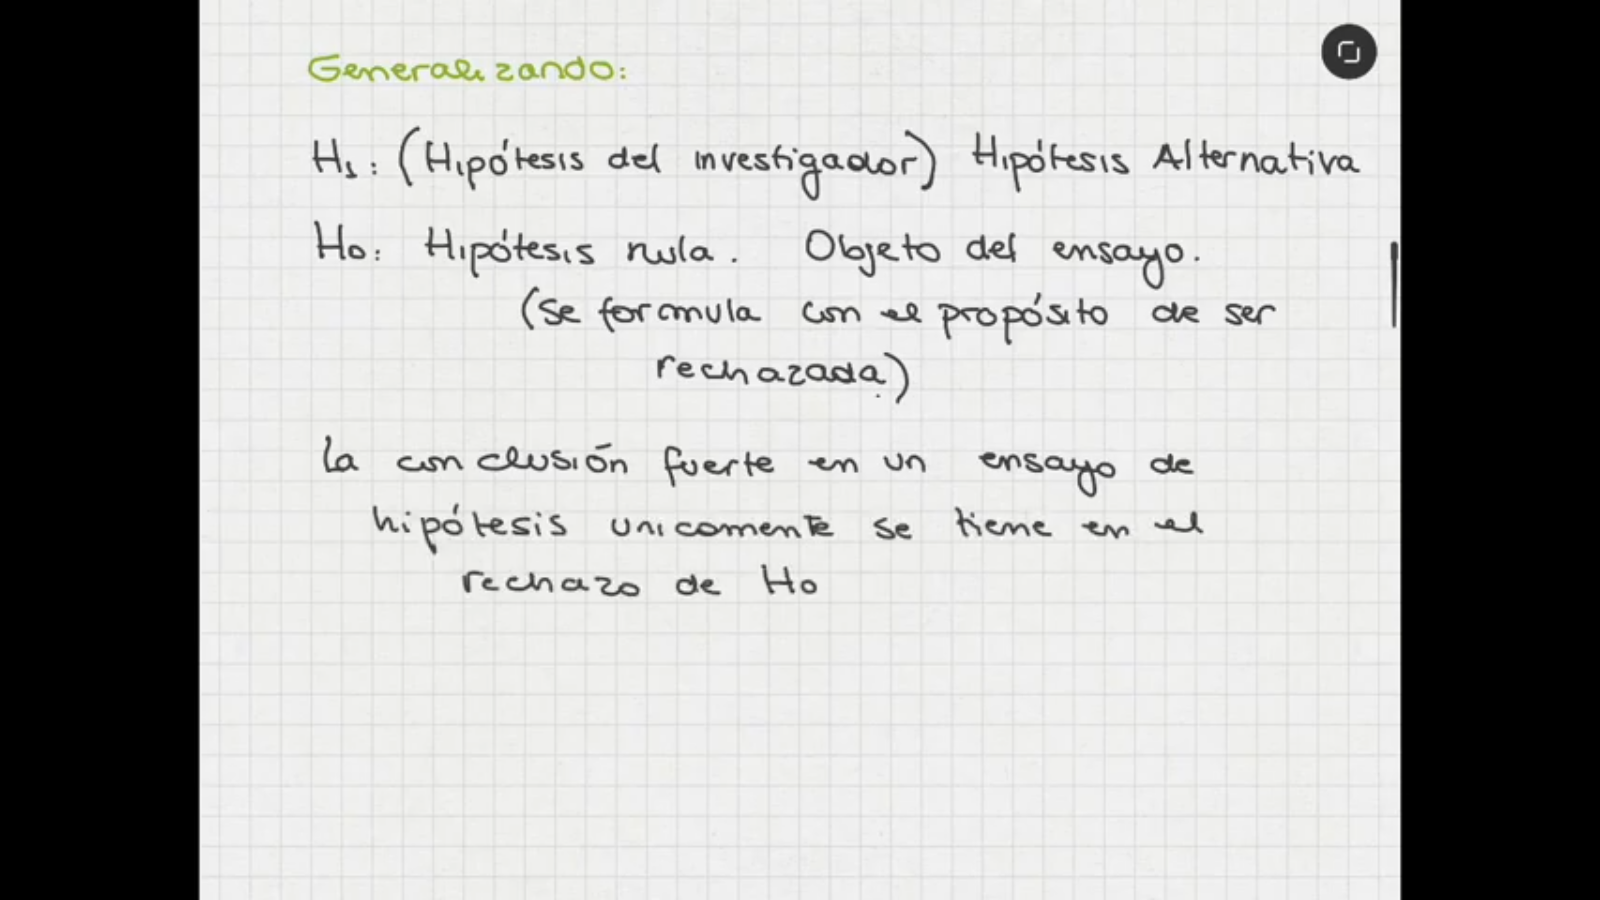 Generalizando:
H1: (Hipótesis del investigador) Hipótesis Alternativa
Ho: Hipótesis nula. Objeto del ensayo.
(Se formula con el propósito de ser
rechazada)
La conclusión fuerte en un ensayo de
hipótesis unicamente se tiene en el
rechazo de Ho